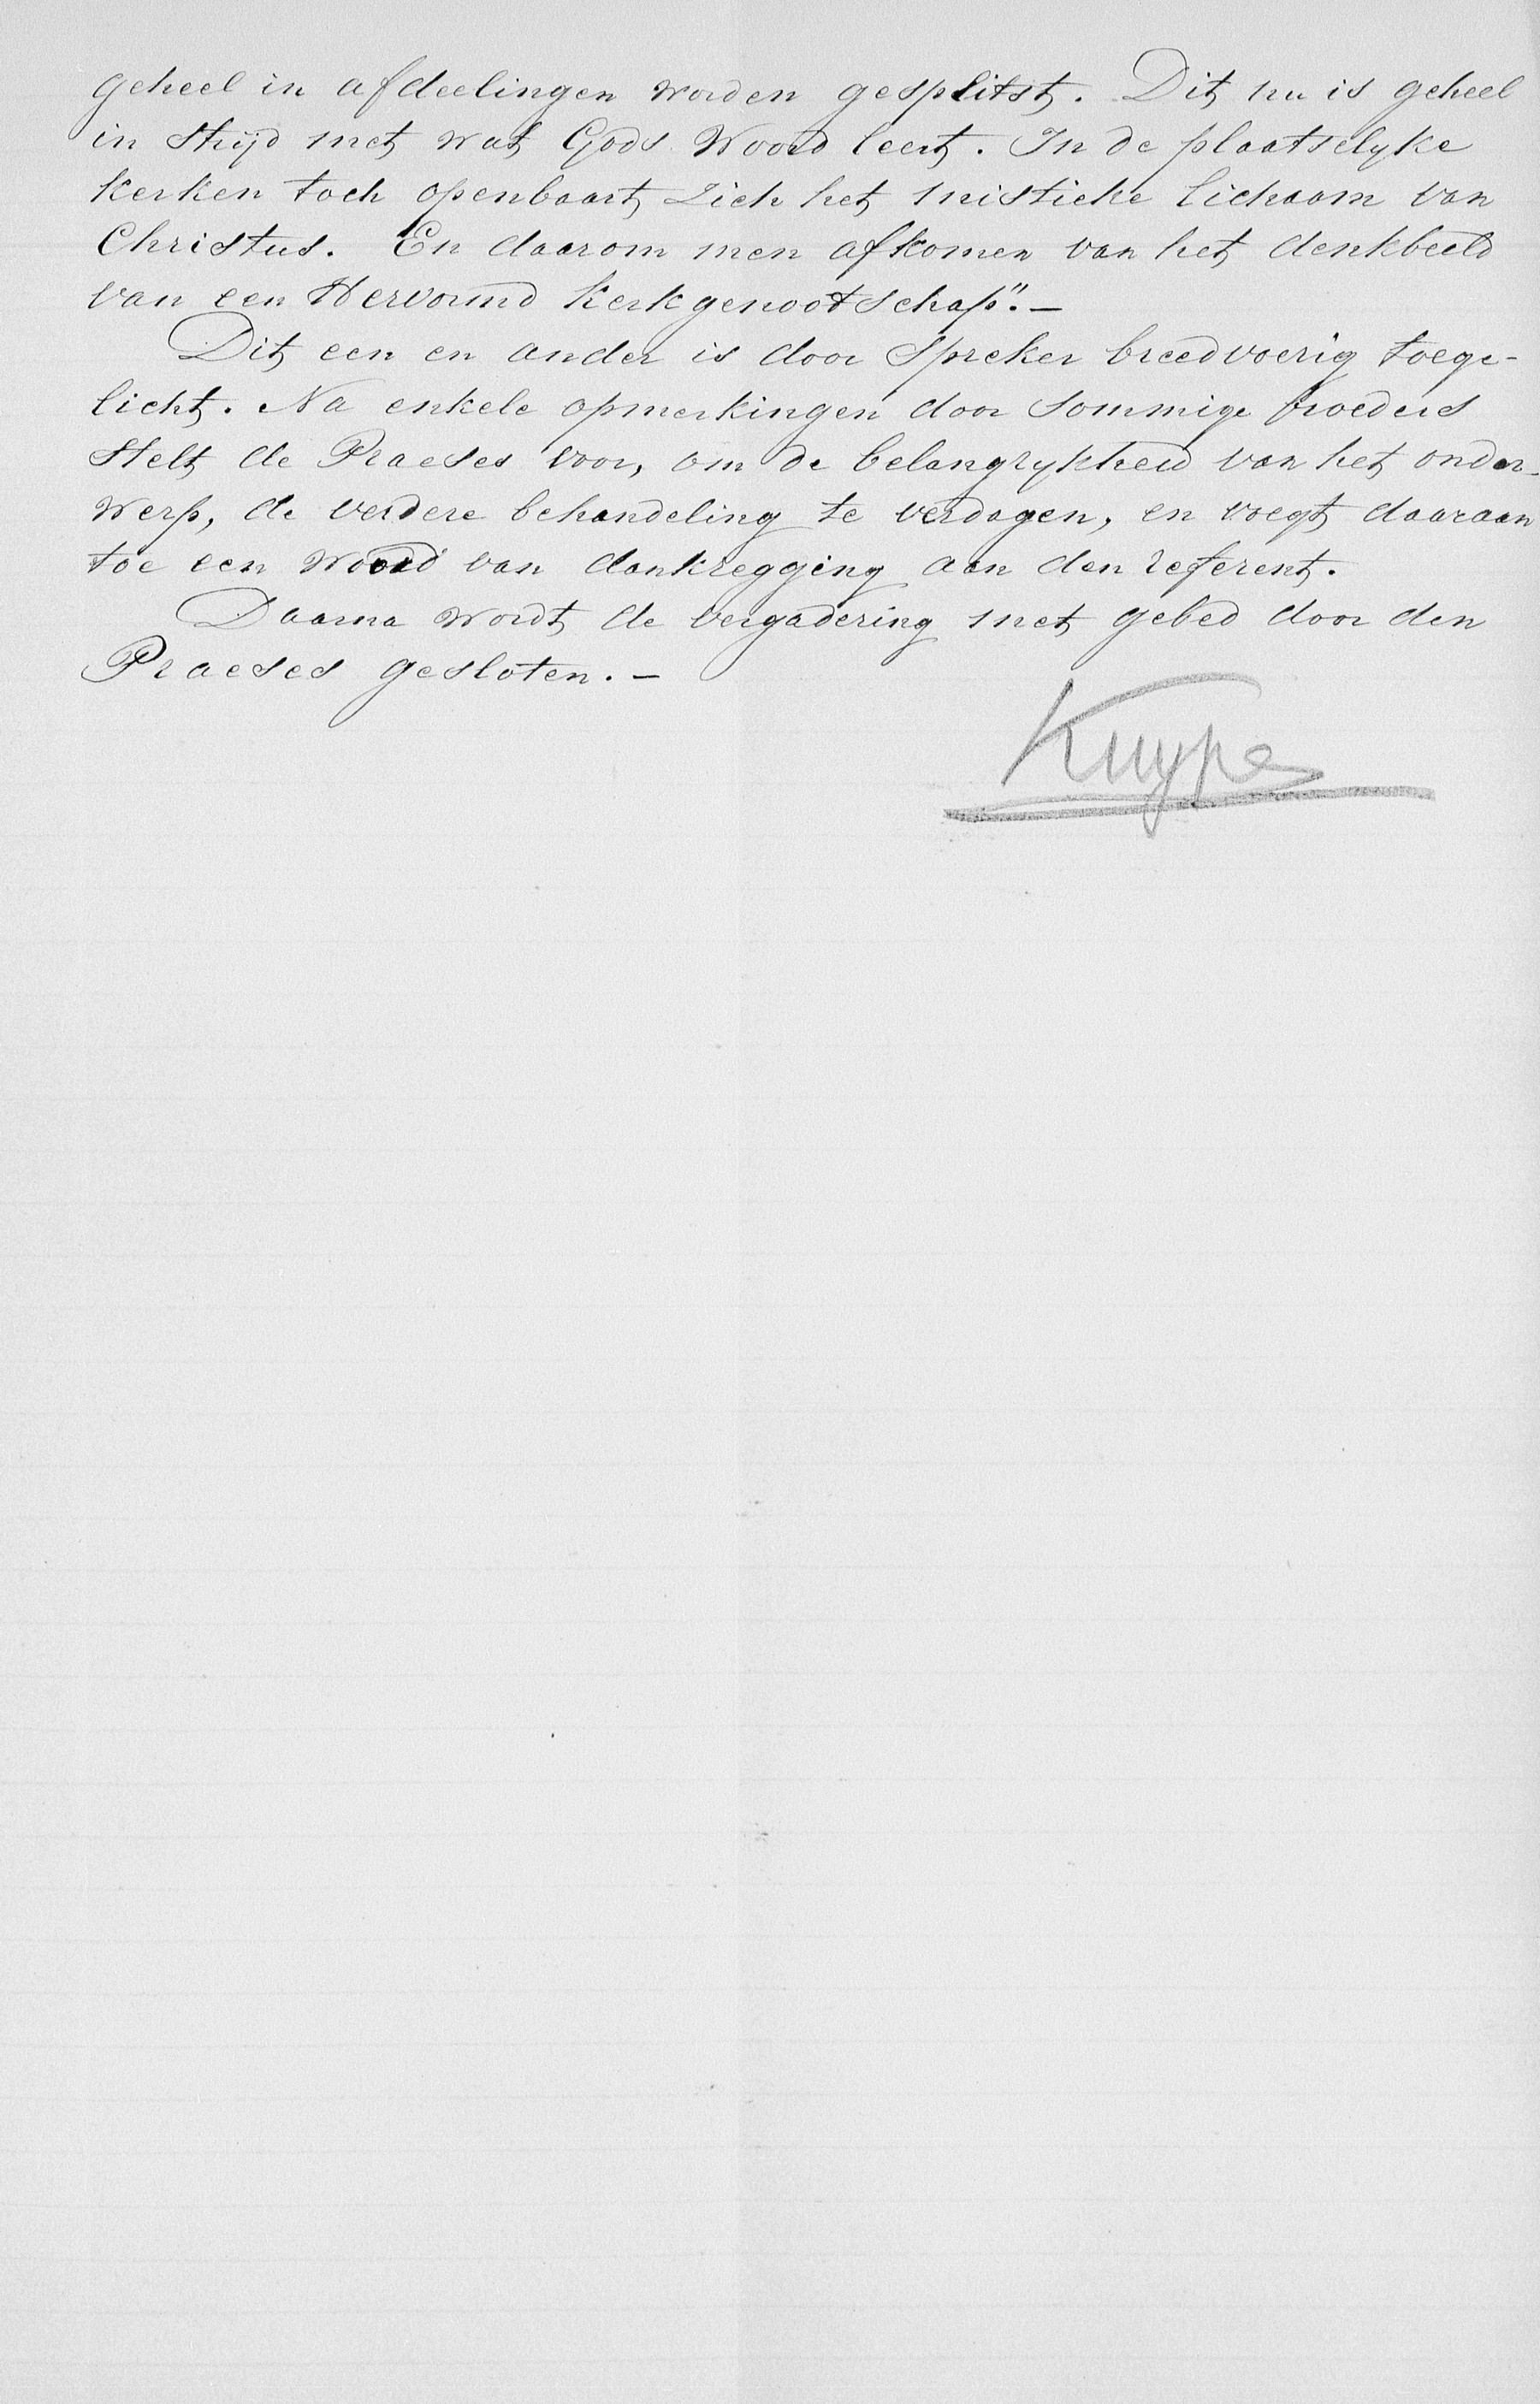 geheel in afdeelingen worden gesplitst. Dit nu is geheel
in strijd met wat Gods Woord leert. In de plaatselyke
kerken toch openbaart zich het mistieke lichaam van
Christus. En daarom men afkomen van het denkbeeld
van een Hervormd kerkgenootschap". —
Dit een en ander is door Spreker breedvoerig toege-
licht. Na enkele opmerkingen door sommige broeders
stelt de Praeses voor, om de belangrykheid van het onder-
werp, de verdere behandeling te verdagen, en voegt daaraan
toe een woord van dankzegging aan den referent.
Daarna wordt de vergadering met gebed door den
Praeses gesloten. —
Kuyper